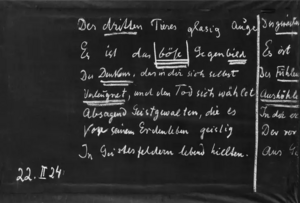 Des dritten Tieres glasig Auge
Es ist das böse Gegenbild
Des Denkens, das in dir sich selbst
Verleugnet, und den Tod sich wählet
Absagend Geistgewalten, die es
Vor seinem Erdenleben geistig
In Geistesfeldern lebend hielten.
22. II 24.
Des gewes
Es ist
Des Fühle
Aushöhle
In der
Der vor
Aus Ge